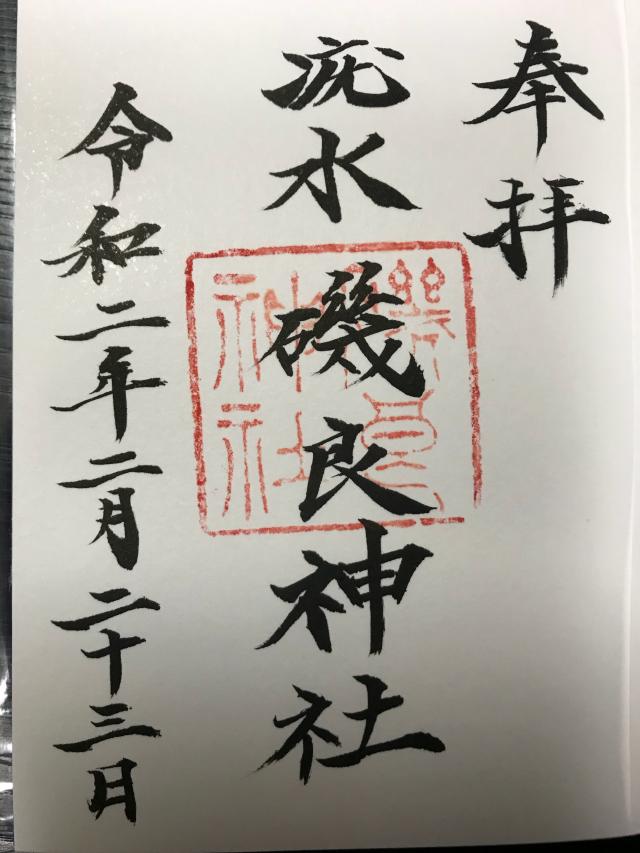 奉拝
疣水磯良神社
磯良神社
令和二年二月二十三日